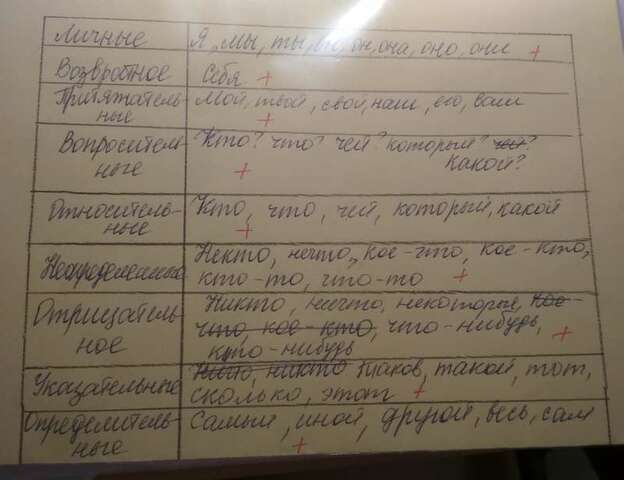 Личные Я, мы, ты, вы, он, она, оно, они +
Возвратное Себя +
Притяжатель- Мой, твой, свой, наш, его, ваш
ные +
Вопроситель Кто? что? чей? который? чей?
ные + Какой?
Относитель- Кто, что, чей, который, какой
ные +
Неопределенные Некто, нечто, кое-что, кое-кто,
кто-то, что-то +
Отрицатель Никто, ничто, некоторые, кое-
ное что, кое-кто, что-нибудь, +
кто-нибудь
Указательные никто таков, такой, тот,
сколько, этот +
Определитель- Самый, иной, другой, весь, сам
ные +